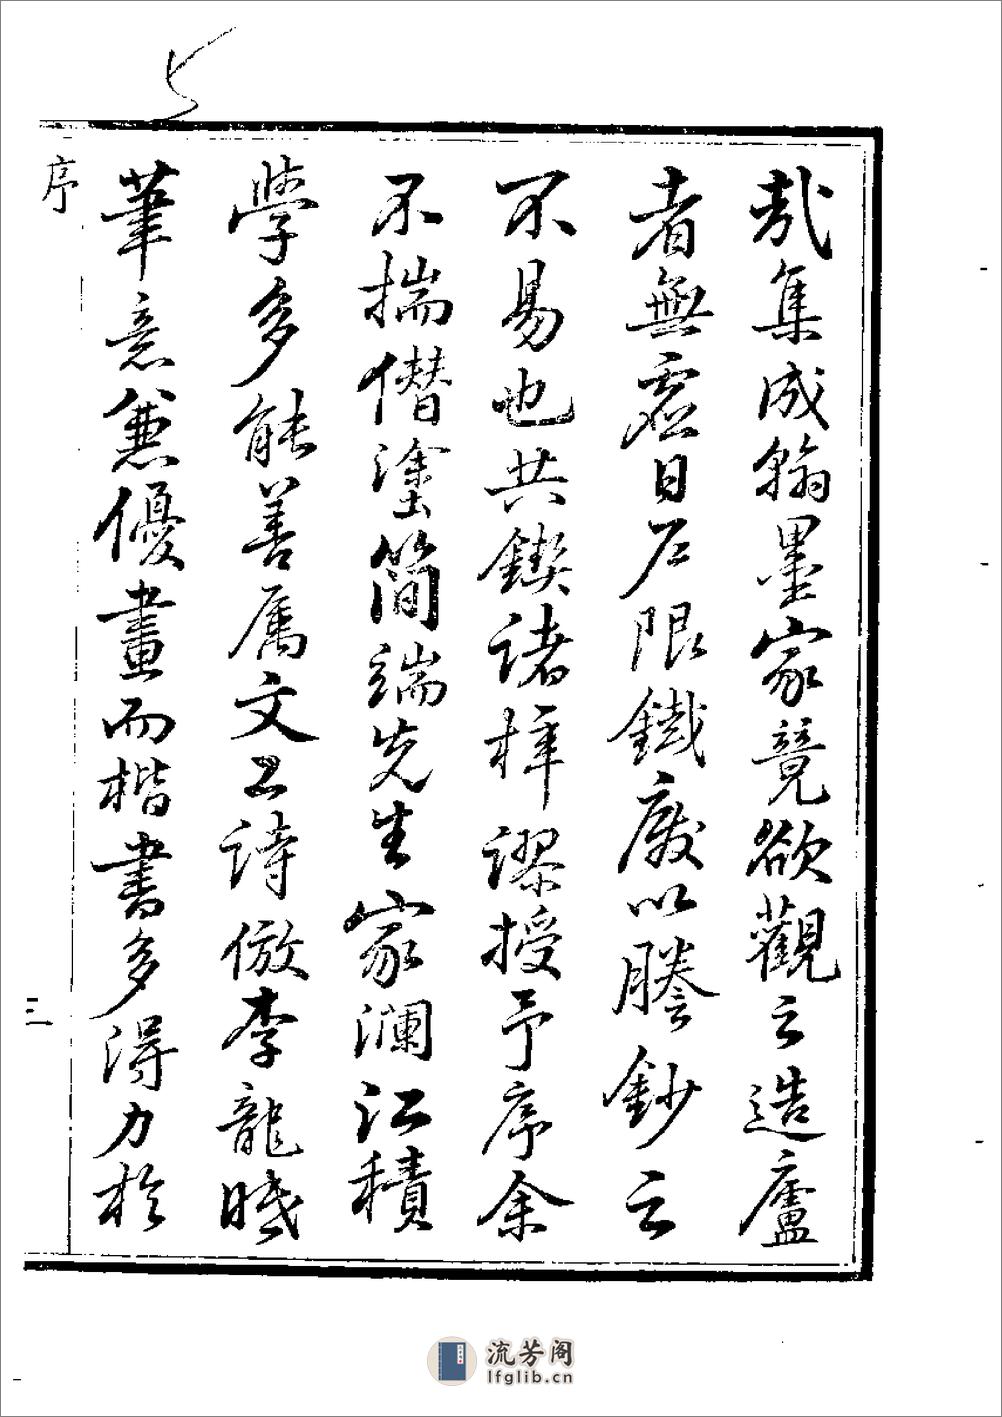 哉集成翰墨家競欲觀之造廬
者無虛日戶限鐵廢以謄鈔之
不易也共鍥諸梓謬授予序余
不揣僭塗簡端先生家瀾江積
學多能善属文工詩倣李龍眠
筆意兼優畫而楷書多得力於
序
三
流芳阁
lfglib.cn